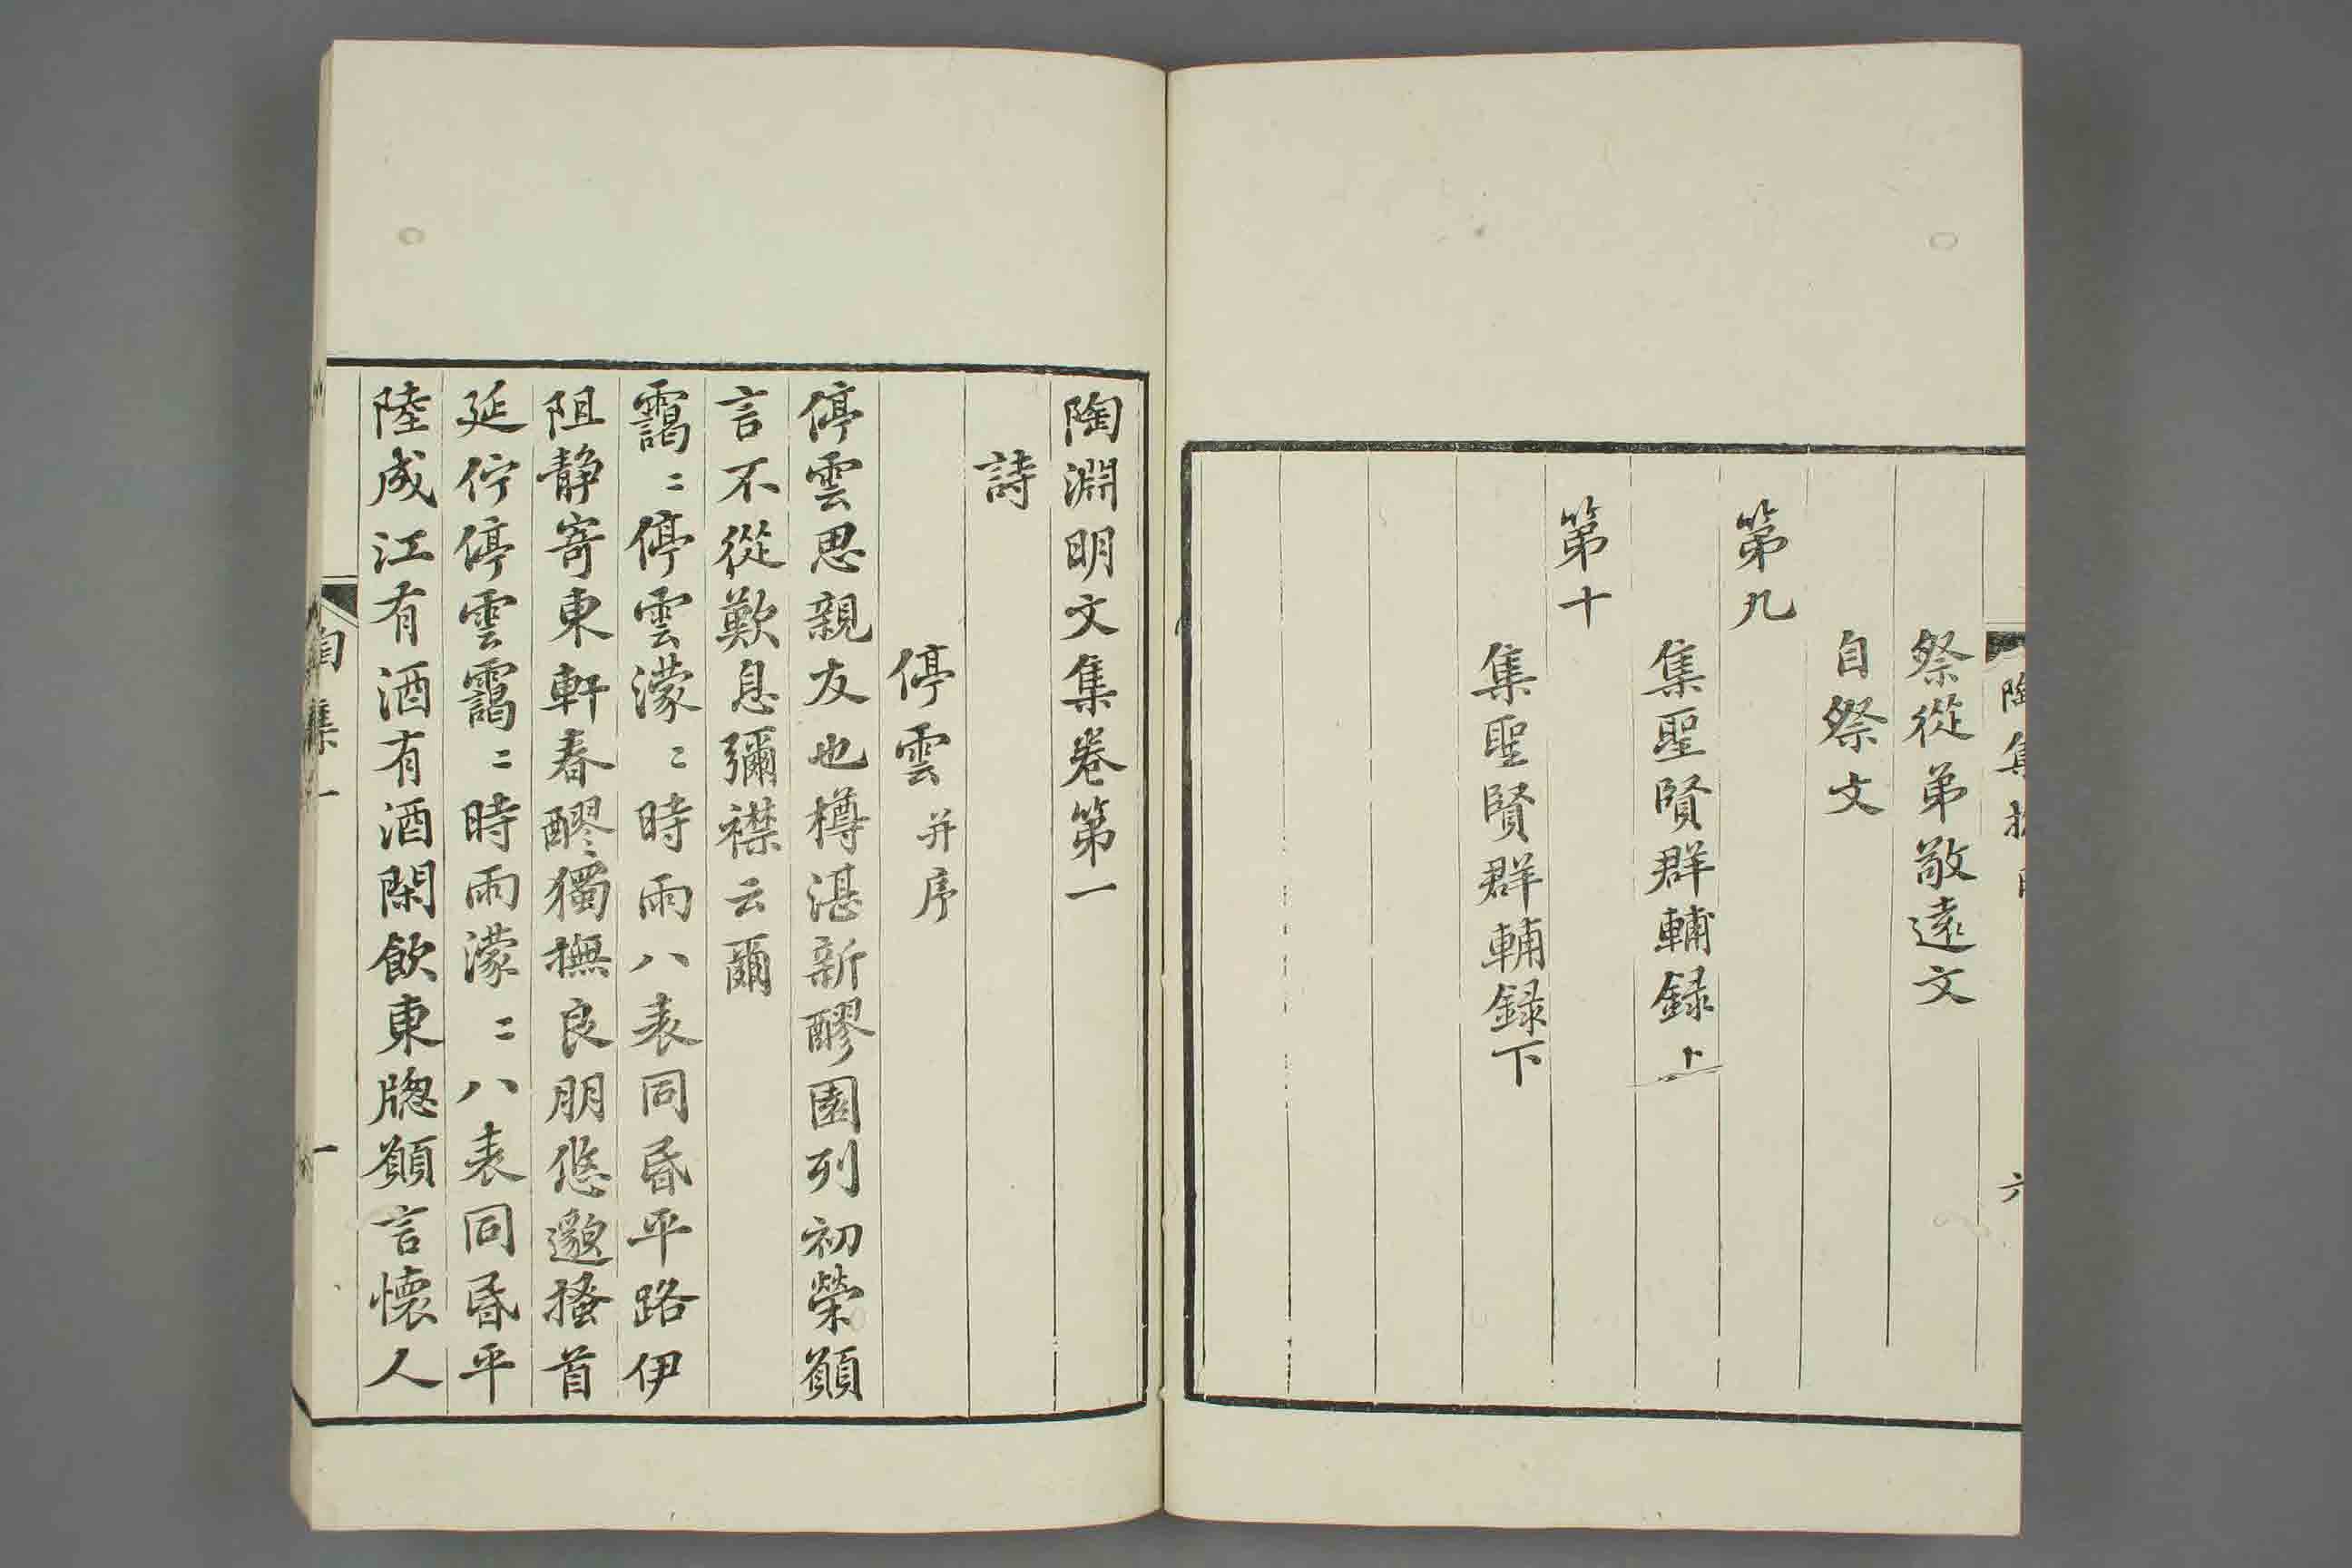 祭從弟敬遠文
自祭文
第九
集聖賢群輔録上
第十
集聖賢群輔録下
六
陶淵明文集卷第一
詩
停雲并序
停雲思親友也樽湛新醪園列初榮願
言不從歎息彌襟云爾
靄〻停雲濛〻時雨八表同昏平路伊
阻静寄東軒春醪獨撫良朋悠邈搔首
延佇停雲靄〻時雨濛〻八表同昏平
陸成江有酒有酒閑飲東牎願言懷人
陶集一
一